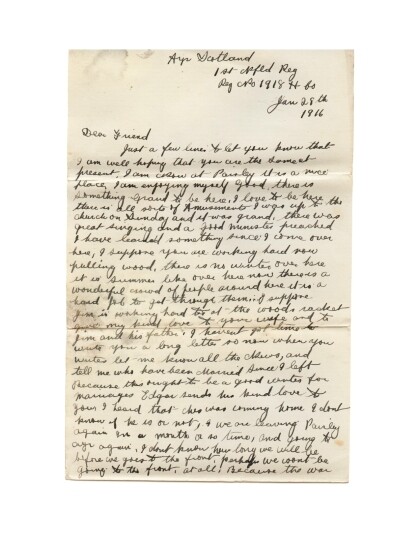 Ayr Scotland
1st Nfld Reg
Reg No 1918 H Co
Jan 28th
1916
Dear Friend
Just a few lines to let you know that
I am well hoping that you are the same at
present, I am now at Paisley it is a nice
place, I am enjoying myself good, this is
something grand to be here, I love to be here
there is all sorts of Amusements I was up to the
church on Sunday and it was grand, there was
great singing and a good minister preached
I have learned something since I come over
here, I suppose you are working hard now
pulling wood, there is no winter over here
it is summer like over here now there is a
wonderful crowd of people around here it is a
hard job to get through them. I suppose
Jim is working hard at the woods racket
give my kind love to your wife and to
Jim and his father. I havent got time to
write you a long letter so now when you
writes let me know all the News, and
tell me who have been Married since I left
because this ought to be a good winter for
marriages Edgar sends his kind love to
you I heard that was coming home I dont
know if he is or not, we are leaving Paisley
again in a month or so time, and going to
Ayr again. I dont know how long we will be
before we goes to the front, perhaps we wont be
going to the front, at all! Because the war